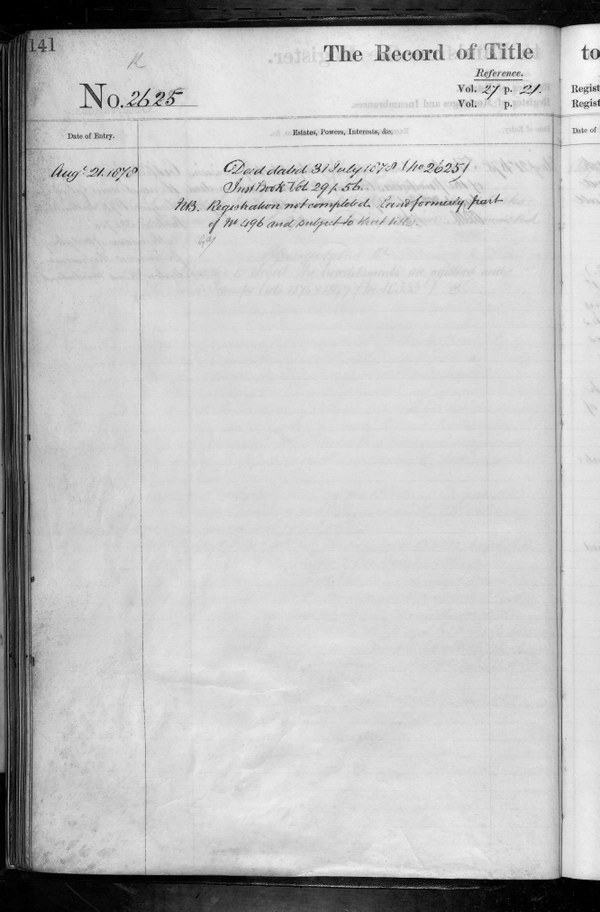 141
The Record of Title
to
Reference.
No. 2625
Vol. 27 p. 21.
Regist
Vol. p.
Regist
Date of Entry.
Estates, Powers, Interests, &c.
Date of
Augt 21. 1878
Deed dated 31 July 1878 (No 2625)
Inst Book Vol 29 p. 56.
NB. Registration not completed. Land formerly part
of No 496 and subject to that title.